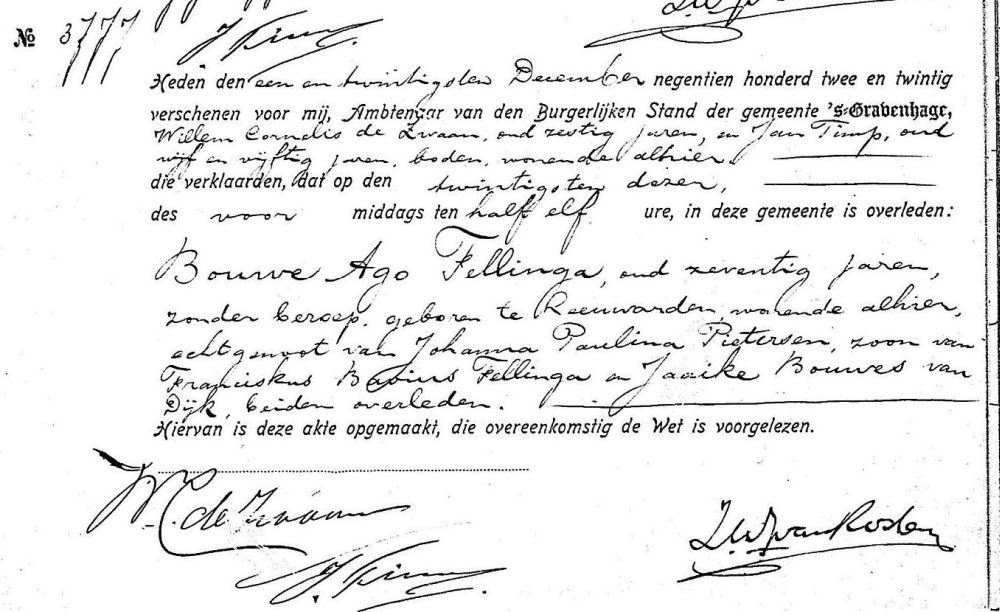 № 3777
J Timp.
Heden den een en twintigsten December negentien honderd twee en twintig
verschenen voor mij, Ambtenaar van den Burgerlijken Stand der gemeente 's-Gravenhage,
Willem Cornelis de Zwaan, oud zestig jaren, en Jan Timp, oud
vijf en vijftig jaren, boden, wonende alhier.
die verklaarden, dat op den twintigsten dezer,
des voor middags ten half elf ure, in deze gemeente is overleden:
Bouwe Ago Fellinga, oud zeventig jaren,
zonder beroep, geboren te Leeuwarden, wonende alhier,
echtgenoot van Johanna Paulina Pietersen, zoon van
Franciskus Bavius Fellinga en Jaaike Bouwes van
Dijk, beiden overleden.
Hiervan is deze akte opgemaakt, die overeenkomstig de Wet is voorgelezen.
W. C. de Zwaan
J. Timp